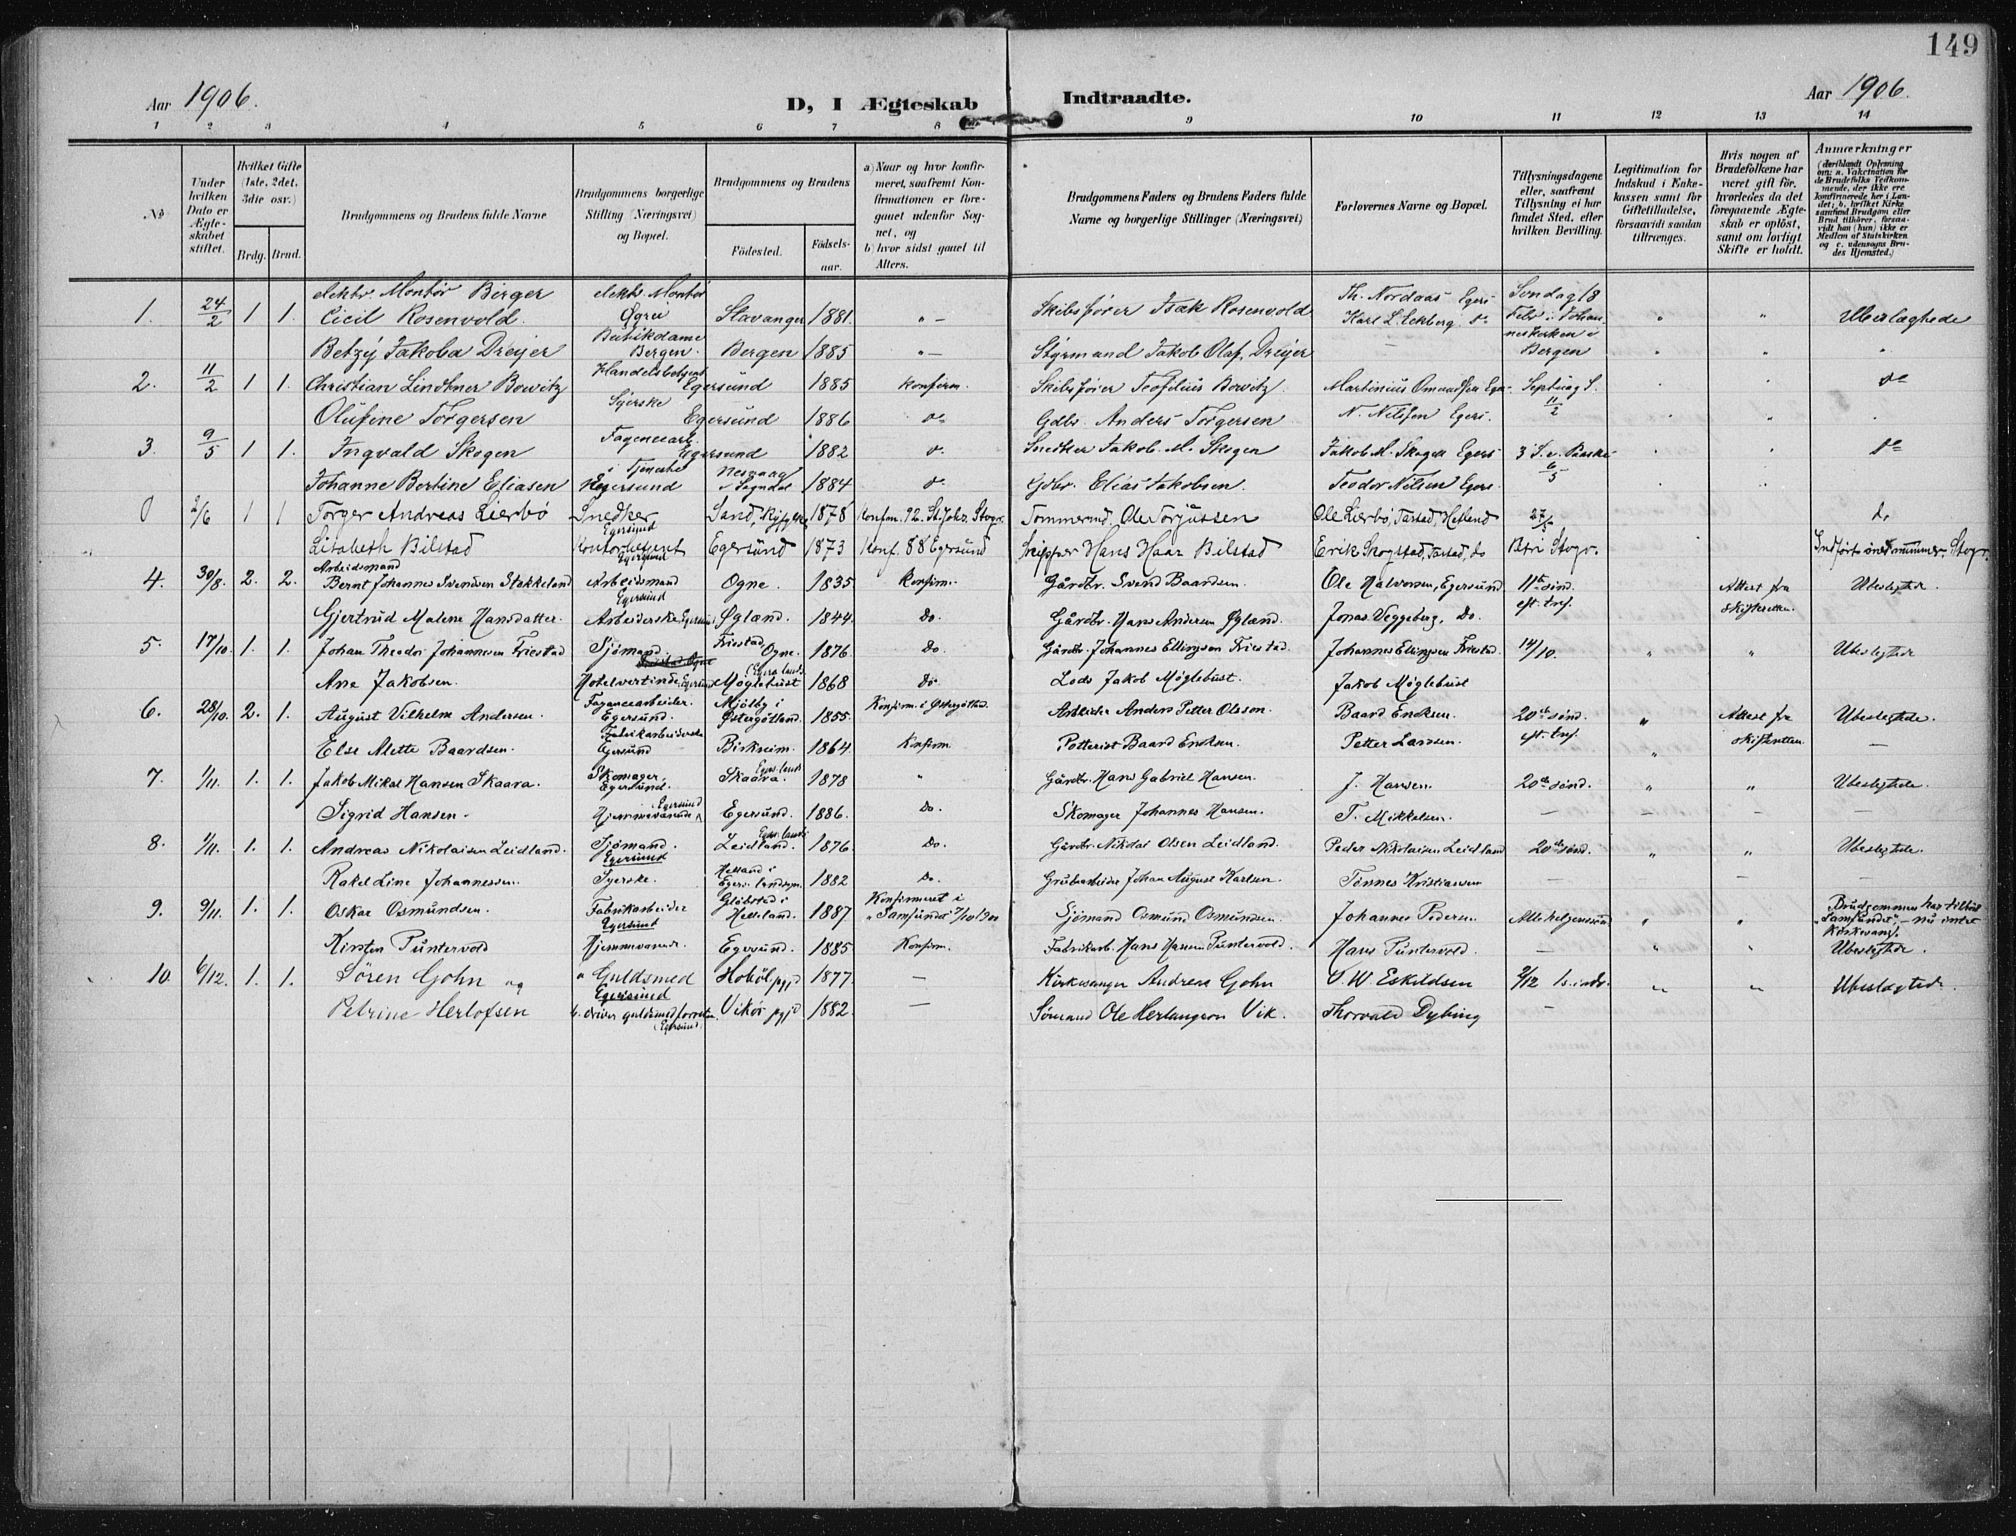 149
Aar 1906.
D, I Ægteskab Indtraadte.
Aar 1906.
1 2 3 4 5 6 7 8 9 10 11 12 13 14
No
Under hvilken Dato er Ægteskabet stiftet.
Hvilket Gifte (1ste, 2det, 3die osv.)
Brdg. Brud.
Brudgommens og Brudens fulde Navne
Brudgommens borgerlige Stilling (Næringsvei) og Bopæl.
Brudgommens og Brudens
Fødested. Fødselsaar.
a) Naar og hvor konfirmeret, saafremt Konfirmationen er foregaaet udenfor Sognet, og
b) hvor sidst gaaet til Alters.
Brudgommens Faders og Brudens Faders fulde Navne og borgerlige Stillinger (Næringsvei)
Forlovernes Navne og Bopæl.
Tillysningsdagene eller, saafremt Tillysning ei har fundet Sted, efter hvilken Bevilling.
Legitimation for Indskud i Enkekassen samt for Giftetilladelse, forsaavidt saadan tiltrænges.
Hvis nogen af Brudefolkene har været gift før, hvorledes da det foregaaende Ægteskab er opløst, samt om lovligt Skifte er holdt.
Anmærkninger
(deriblandt Oplysning om: a. Vakcination for de Brudefolks Vedkommende, der ikke ere konfirmerede her i Landet; b. hvilket Kirkesamfund Brudgom eller Brud tilhører, forsaavidt han (hun) ikke er Medlem af Statskirken og c. udensogns Brudes Hjemsted.)
1. 24/2 1 1. elektr. Montør Birger Cicil Rosenvold. elektr. Montør Ogne Stavanger 1881. "— Skibsfører Isak Rosenvold Th. Nordaas Egers. Karl L. Eckberg do Søndag 18 Febr. i Johanneskirken i Bergen " " Ubeslægtede
Betzy Jakoba Dreyer Bergen. Bergen 1885 "— Styrmand Jakob Olaf Dreyer — " "
2. 11/2 1 1. Christian Lindtner Bowitz Handelsbetjent Egersund 1885 konfirm. Skibsfører Teofilus Bowitz. Martinius Omundsen Egers. Septuag S. 11/2 do
Olufine Torgersen Syerske Egersund 1886 do Gdbr. Anders Torgersen N. Nilssen Egers.
3. 9/5 1 1. Ingvald Skogen Fayancearb. Egersund 1882 do Snedker Jakob M. Skogen Jakob M. Skogen Egers. 3 S. e. Paaske 6/5 do
Johanne Bertine Eliasen i Tjeneste Egersund i Sogndal 1884 do Gdbr. Elias Jakobsen. Teodor Nilsen Egers.
0 2/6 1 1 Torger Andreas Lierbø Snedker Egersund Sand, Ryfylke 1878 Konfirm. 92. St. Johs. Stvgr. Tømmermd. Ole Torjussen Ole Lierbø, Tastad, Hetland 27/5 do
Lisabeth Bilstad Kontorbetjent Egersund Egersund 1873 Konf. 88 Egersund Skipper Hans Haar Bilstad Erik Skogstad, Tastad, do Petri Stvgr. Indført under nummer, Stvgr.
4. 30/8. 2. 2. Arbeidsmand Bernt Johannes Svendsen Stokkeland Arbeidsmand Egersund Ogne. 1835 Konfirm. Gårdbr. Svend Baardsen. Ole Halvorsen, Egersund 11te sønd. eft. tref. Attest fra skifteretten. Ubeslegtede.
Gjertrud Malene Hansdatter. Arbeiderske Egersund Øgland. 1844. Do. Gårdbr. Hans Andersen Øgland. Jonas Veggeberg, Do.
5. 17/10. 1. 1. Johan Theodor Johannesen Friestad Sjømand Friestad Ogne. 1876 Do Gårdbr. Johannes Ellingsen Friestad. Johannes Ellingsen Friestad. 14/10. " " Ubeslegtede
Ane Jakobsen. Hotelvertinde, Egersund Møglebust (Egers. lands. 1868 Do. Lods Jakob Møglebust. Jakob Møglebust
6. 28/10. 2. 1. August Vilhelm Andersen. Fayancearbeider. Egersund. Mjölby i Østergötland. 1855. Konfirm. i Østergötld. Arbeider Anders Petter Olsson. Baard Eriksen. 20de sønd. eft. tref. " Attest fra skifteretten Ubeslegtede.
Else Alette Baardsen. Fabrikarbeiderske Egersund Birkreim. 1864. Konfirm. Potterist Baard Eriksen. Petter Larssen. " —
7. 1/11. 1. 1. Jakob Mikal Hansen Skaara. Skomager, Egersund. Skaara. Egers. lands. 1878 " Gårdbr. Hans Gabriel Hansen. J. Hansen. 20de sønd. " " Ubeslegtede.
Sigrid Hansen. Hjemmeværende Egersund Egersund. 1886. Do. Skomager Johannes Hansen. T. Mikkelsen. — — — —
8. 1/11. 1. 1. Andreas Nikolaisen Leidland. Sjømand. Egersund Leidland. Egers. lands. 1876. Do. Gårdbr. Nikolai Olsen Leidland. Peder Nikolaisen Leidland 20de sønd. " " Ubeslegtede.
Rakel Line Johannessen. Syerske. Helland i Egers. landsogn. 1882 Do. Grubearbeider Johan August Karlsen. Tønnes Kristiansen — — —
9. 9/11. 1. 1. Oskar Osmundsen. Fabrikarbeider Egersund i Helleland. 1887 Konfirmeret i "Samfundet" 7/10 1900 Sjømand Osmund Osmundsen. Johannes Pedersen Alle helgens sønd. " " Brudgommen har tilhørt "Samfundet", – nu intet kirkesamf.
Kirsten Puntervold Hjemmeværende. Egersund. 1885. Konfirm. Fabrikarb. Hans Hansen Puntervold. Hans Puntervold. — " " Ubeslegtede.
10. 6/12. 1. 1. Sören Gohn og " Guldsmed Egersund Hobøl pgjd 1877. — Kirkesanger Andreas Gohn O. W. Eskildsen 2/12 1s. i adv. " " Ubeslægtede.
Petrine Herlofsen b. driver guldsmedforretn. (Egersund.) Vikør pgjd 1882. — Sømand Ole Herlaugson Vik. Thorvald Dybing